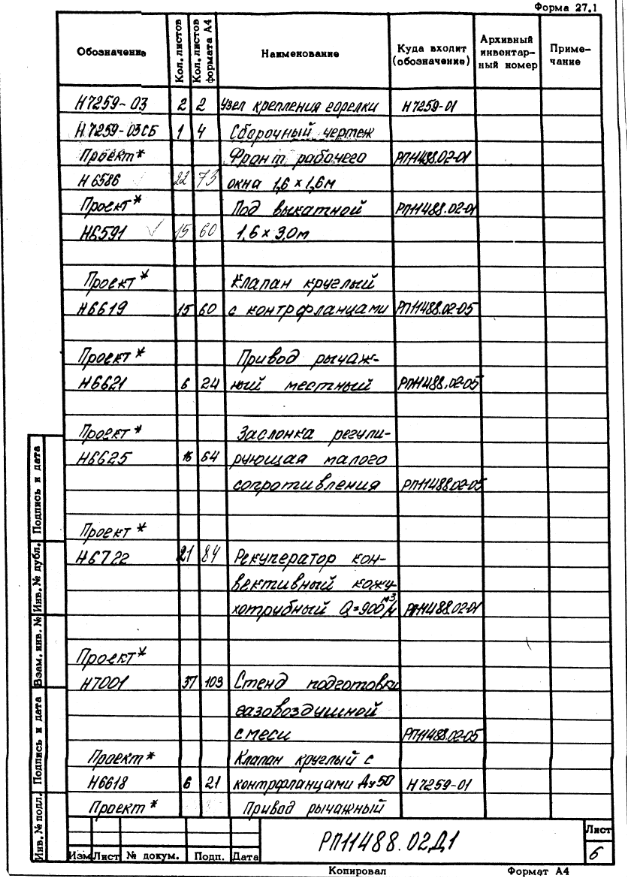 Форма 27.1
Обозначение Кол. листов Кол. листов формата А4 Наименование Куда входит (обозначение) Архивный инвентар- ный номер Приме- чание
Н7259-03 2 2 Узел крепления горелки Н7259-01
Н7259-03СБ 1 4 Сборочный чертеж
Проект* Фронт рабочего РП11488.02-01
Н6586 22 73 окна 1,6 × 1,6м
Проект* Под выкатной РП11488.02-01
Н6591 15 60 1,6 × 3,0м
Проект* Клапан круглый
Н6619 15 60 с контрфланцами РП11488.02-05
Проект* Привод рычаж-
Н6621 6 24 ный местный РП11488.02-05
Проект* Заслонка регули-
Н6625 16 64 рующая малого
сопротивления РП11488.02-05
Проект*
Н6722 21 84 Рекуператор кон-
вективный кожу
хотрубный Q=900 м³/ч РП11488.02-01
Проект*
Н7001 37 103 Стенд подготовки
газовоздушной
смеси РП11488.02-05
Проект* Клапан круглый с
Н6618 6 21 контрфланцами Ду50 Н7259-01
Проект* Привод рычажный
Инв. № подл. Подпись и дата Взам. инв. № Инв. № дубл. Подпись и дата
РП11488.02Д1
Лист
6
Изм Лист № докум. Подп. Дата
Копировал Формат А4